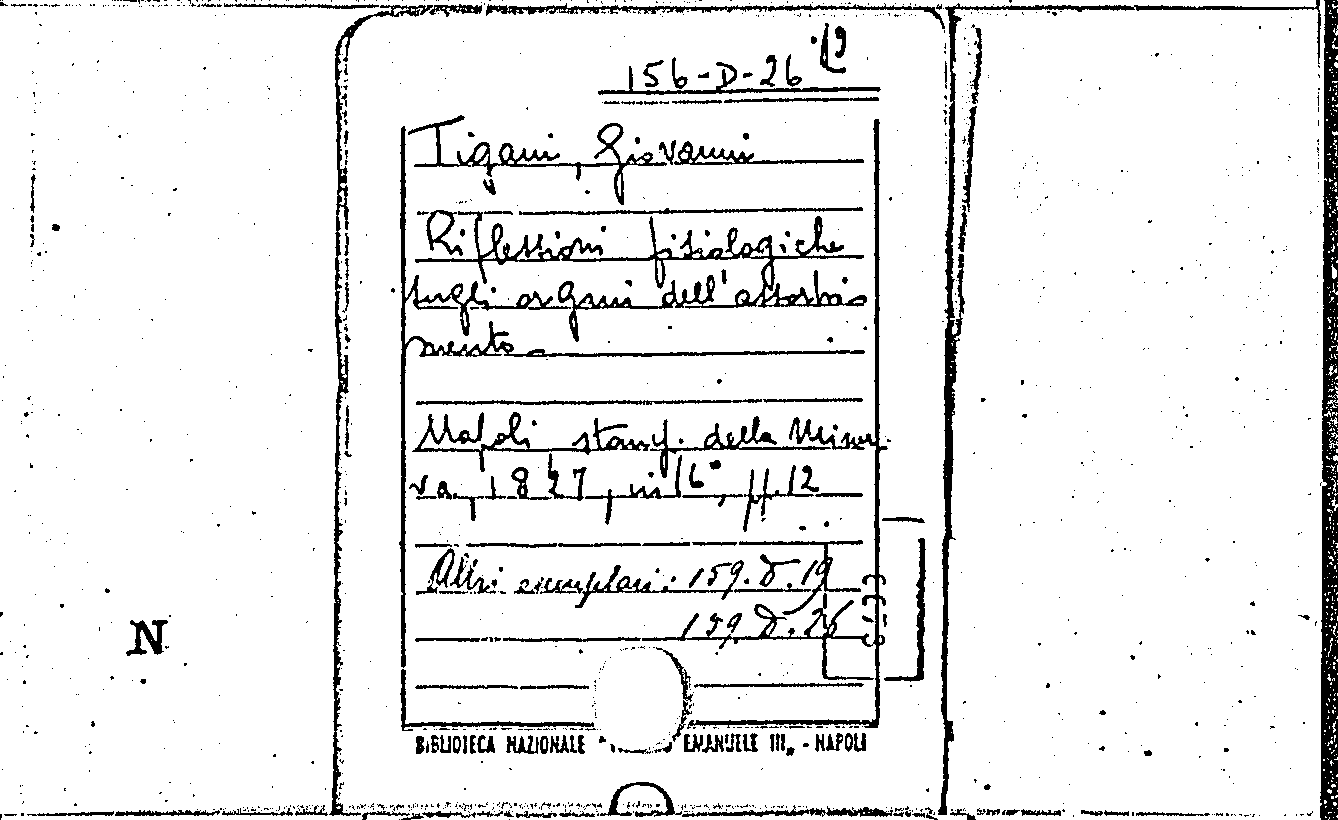 156-D-26 (9
Tigani, Giovanni
Riflessioni fisiologiche
sugli organi dell'assorbi-
mento-
Napoli stamp. della Miner-
va, 1827, in 16°, pp. 12
Altri esemplari: 159.D.19
159.D.26
N
BIBLIOTECA NAZIONALE " EMANUELE III„ - NAPOLI